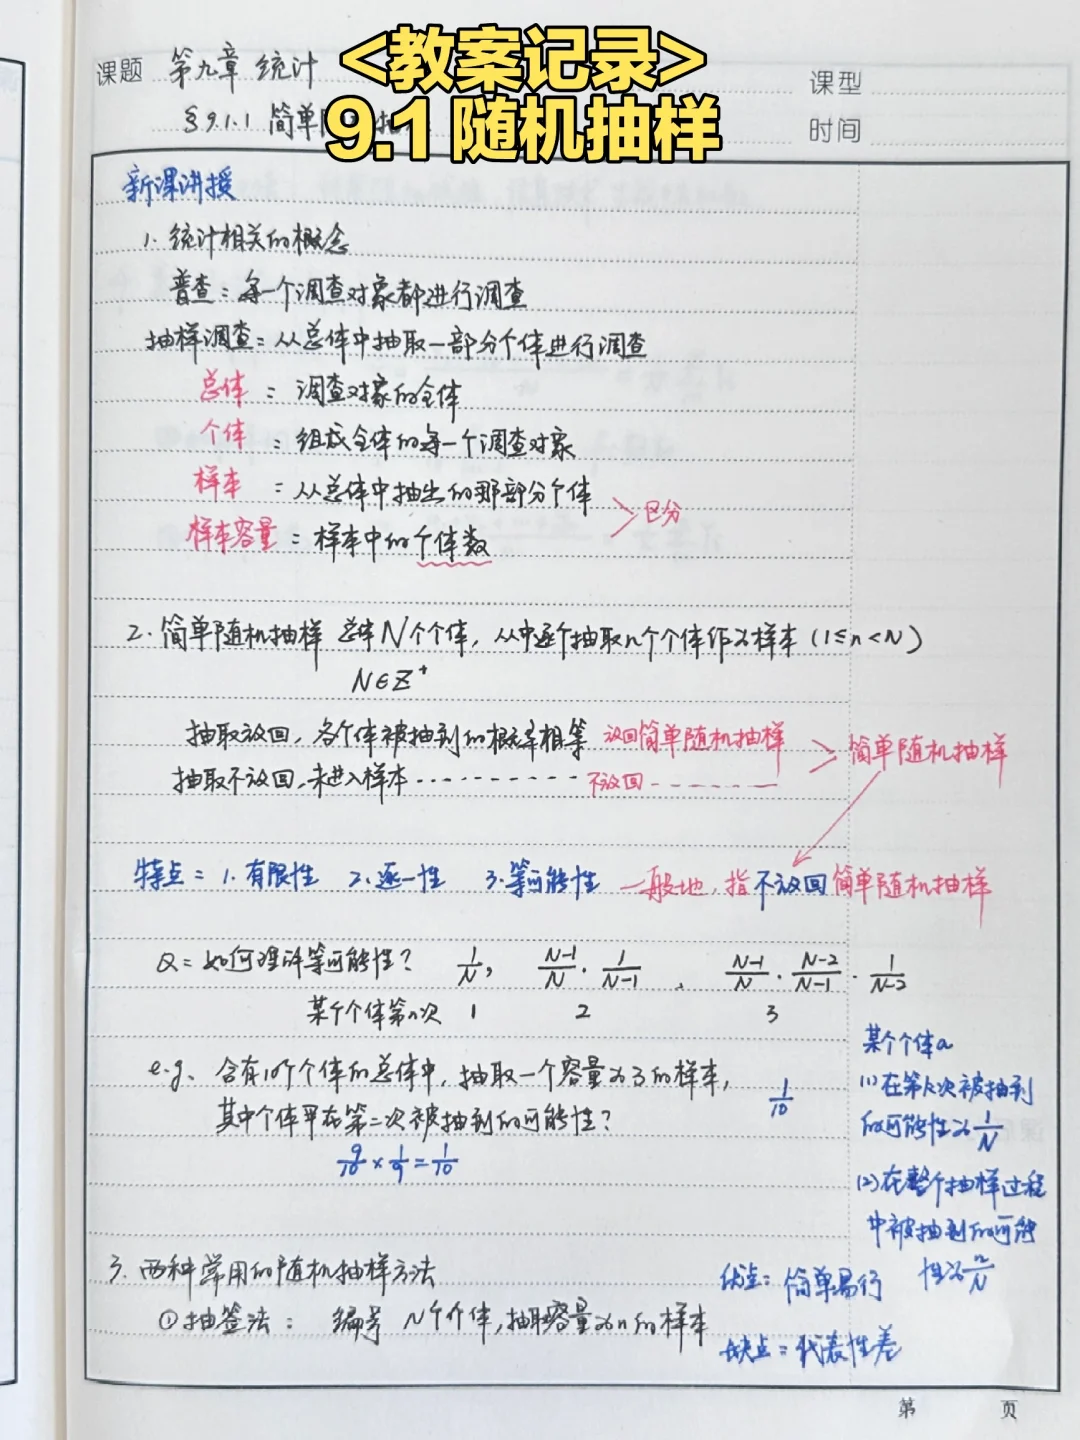 <教案记录>
9.1 随机抽样
课题 第九章 统计
课型
§9.1.1 简单
时间
新课讲授
1. 统计相关的概念
普查：每一个调查对象都进行调查
抽样调查：从总体中抽取一部分个体进行调查
总体：调查对象的全体
个体：组成全体的每一个调查对象
样本：从总体中抽出的那部分个体
样本容量：样本中的个体数
> 区分
2. 简单随机抽样 总体N个个体，从中逐个抽取n个个体作为样本（1≤n<N）
N∈Z⁺
抽取放回，各个体被抽到的概率相等 放回简单随机抽样
抽取不放回，未进入样本 ---------- 不放回-------
> 简单随机抽样
特点：1. 有限性 2. 逐一性 3. 等可能性 一般地，指不放回简单随机抽样
Q：如何理解等可能性？ 1/N， N-1/N · 1/N-1 ， N-1/N · N-2/N-1 · 1/N-2
某个个体第n次 1 2 3
e.g. 含有10个个体的总体中，抽取一个容量为3的样本，
其中个体甲在第二次被抽到的可能性？
1/10
9/10 × 1/9 = 1/10
某个个体a
(1)在第n次被抽到
的可能性为1/N
(2)在整个抽样过程
中被抽到的可能
性为n/N
3. 两种常用的随机抽样方法
①抽签法： 编号 N个个体，抽取容量为n的样本
优点：简单易行
缺点：代表性差
第 页